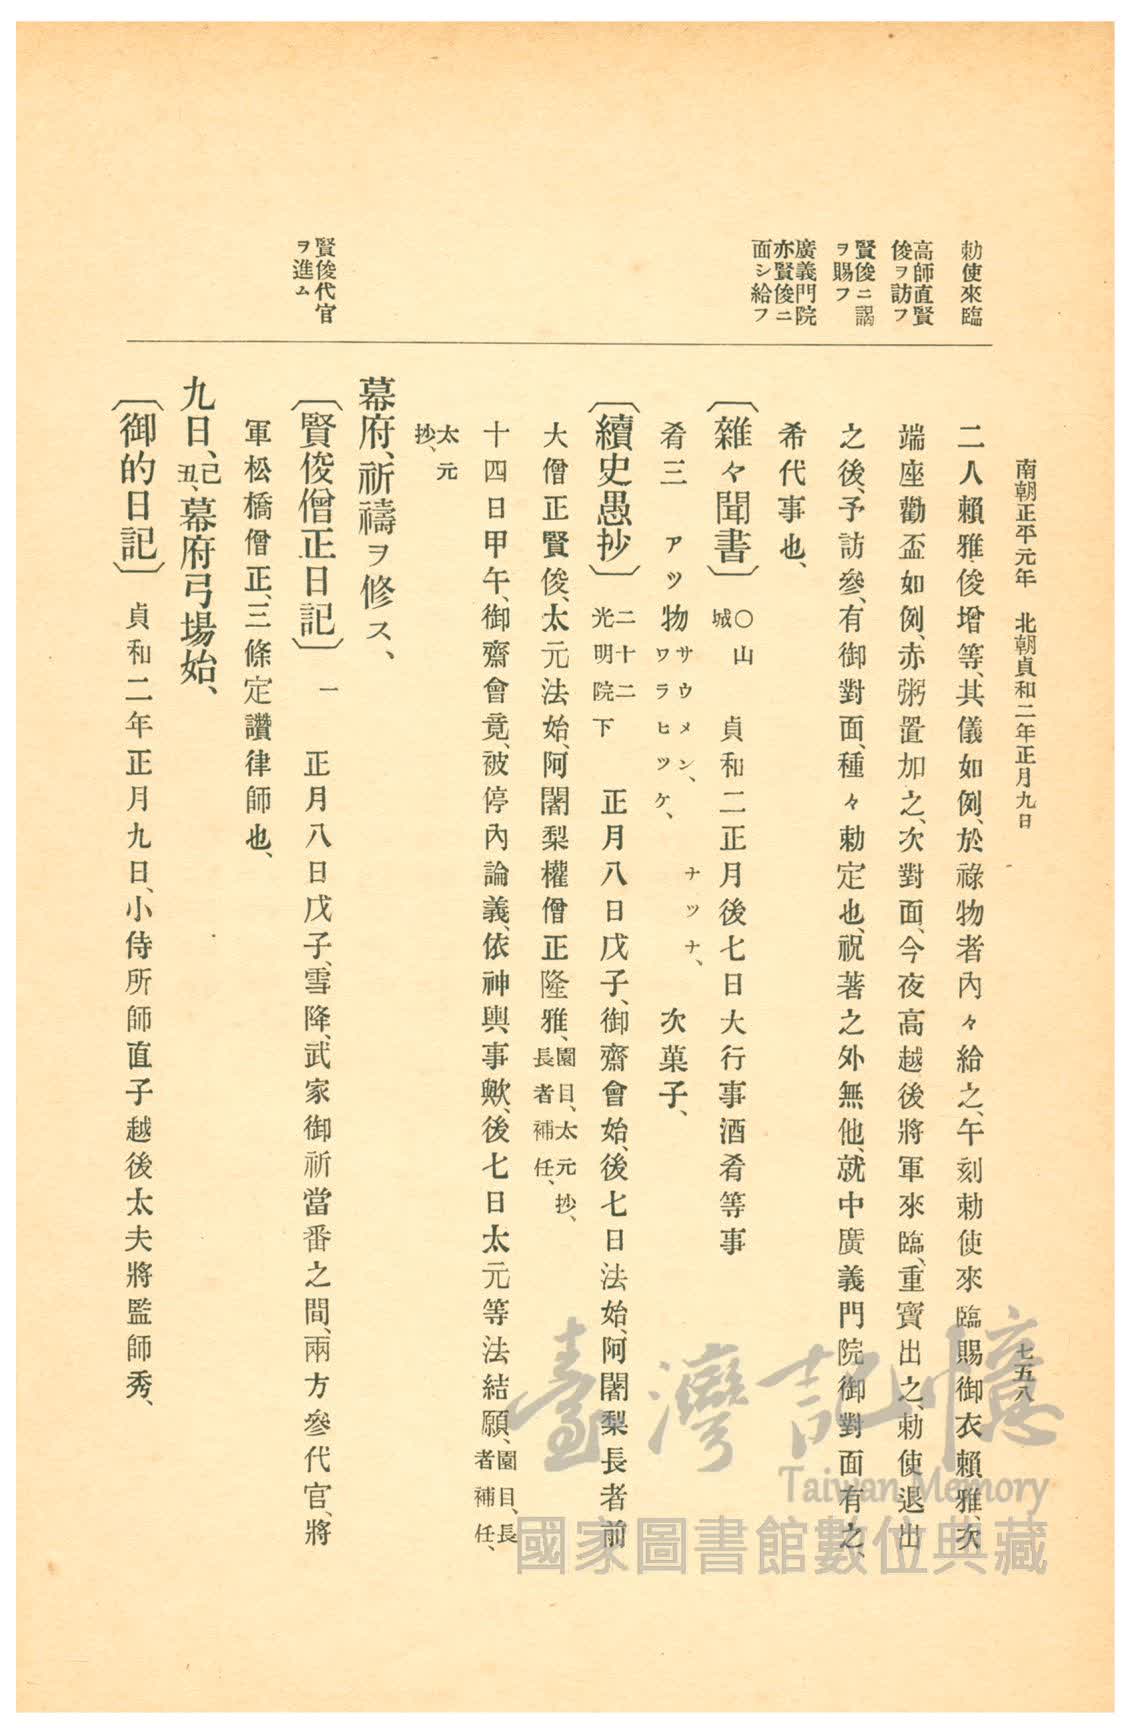 南朝正平元年　北朝貞和二年正月九日　七五八
勅使來臨
高師直賢
俊ヲ訪フ
賢俊ニ謁
ヲ賜フ
廣義門院
亦賢俊ニ
面シ給フ
賢俊代官
ヲ進ム
二人賴雅俊增等、其儀如例、於祿物者內々給之、午刻勅使來臨賜御衣賴雅、次
端座勸盃如例、赤粥置加之、次對面、今夜高越後將軍來臨、重寶出之、勅使退出
之後、予訪參、有御對面、種々勅定也、祝著之外無他、就中廣義門院御對面有之、
希代事也、
〔雜々聞書〕○山城　貞和二正月後七日大行事酒肴等事
肴三　アツ物サウメン、ワラヒツケ、　ナツナ、　次菓子、
〔續史愚抄〕二十二光明院下　正月八日戊子、御齋會始、後七日法始、阿闍梨長者前
大僧正賢俊、太元法始、阿闍梨權僧正隆雅、園目、太元抄、長者補任、
十四日甲午、御齋會竟、被停內論義、依神輿事歟、後七日太元等法結願、園目、長者補任、
太元抄、
幕府、祈禱ヲ修ス、
〔賢俊僧正日記〕一　正月八日戊子、雪降、武家御祈當番之間、兩方參代官、將
軍松橋僧正、三條定讚律師也、
九日、己丑、幕府弓場始、
〔御的日記〕貞和二年正月九日、小侍所師直子越後太夫將監師秀、
臺灣記憶
Taiwan Memory
國家圖書館數位典藏